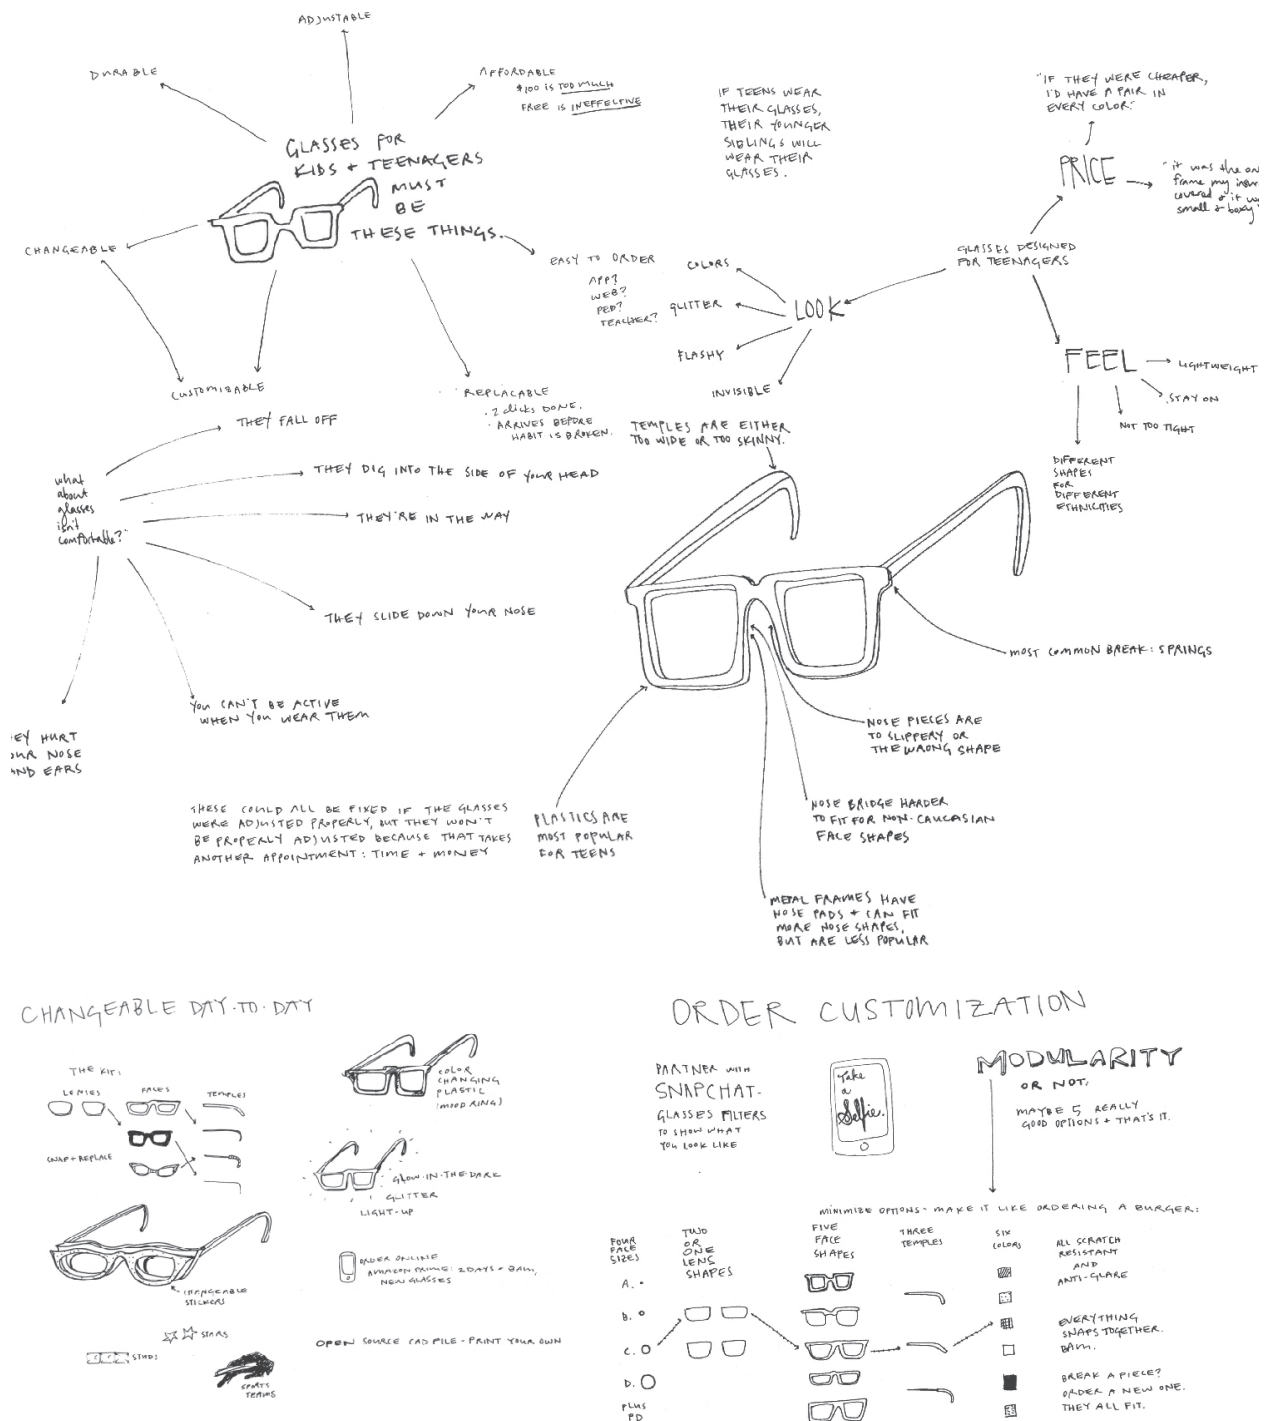 ADJUSTABLE
DURABLE
AFFORDABLE
$100 IS TOO MUCH
FREE IS INEFFECTIVE
GLASSES FOR
KIDS + TEENAGERS
MUST
BE
THESE THINGS.
CHANGEABLE
CUSTOMIZABLE
REPLACABLE
· 2 clicks DONE.
· ARRIVES BEFORE
HABIT IS BROKEN.
EASY TO ORDER
APP?
WEB?
PED?
TEACHER?
IF TEENS WEAR
THEIR GLASSES,
THEIR YOUNGER
SIBLINGS WILL
WEAR THEIR
GLASSES.
"IF THEY WERE CHEAPER,
I'D HAVE A PAIR IN
EVERY COLOR."
PRICE
"it was the
frame my
covered & it
small & boxy"
GLASSES DESIGNED
FOR TEENAGERS
LOOK
COLORS
GLITTER
FLASHY
INVISIBLE
FEEL
LIGHTWEIGHT
STAY ON
NOT TOO TIGHT
DIFFERENT
SHAPES
FOR
DIFFERENT
ETHNICITIES
what
about
glasses
isn't
comfortable?"
THEY FALL OFF
THEY DIG INTO THE SIDE OF YOUR HEAD
THEY'RE IN THE WAY
THEY SLIDE DOWN YOUR NOSE
YOU CAN'T BE ACTIVE
WHEN YOU WEAR THEM
HURT
NOSE
EARS
THESE COULD ALL BE FIXED IF THE GLASSES
WERE ADJUSTED PROPERLY, BUT THEY WON'T
BE PROPERLY ADJUSTED BECAUSE THAT TAKES
ANOTHER APPOINTMENT: TIME + MONEY
TEMPLES ARE EITHER
TOO WIDE OR TOO SKINNY.
MOST COMMON BREAK: SPRINGS
NOSE PIECES ARE
TO SLIPPERY OR
THE WRONG SHAPE
NOSE BRIDGE HARDER
TO FIT FOR NON-CAUCASIAN
FACE SHAPES
PLASTICS ARE
MOST POPULAR
FOR TEENS
METAL FRAMES HAVE
NOSE PADS + CAN FIT
MORE NOSE SHAPES,
BUT ARE LESS POPULAR
CHANGEABLE DAY-TO-DAY
THE KIT:
LENSES
FACES
TEMPLES
SNAP + REPLACE
COLOR
CHANGING
PLASTIC
(MOOD RING)
GLOW-IN-THE-DARK
GLITTER
LIGHT-UP
CHANGEABLE
STICKERS
STARS
STUDS
SPORTS
TEAMS
ORDER ONLINE
AMAZON PRIME: 2 DAYS + BAM,
NEW GLASSES
OPEN SOURCE CAD FILE - PRINT YOUR OWN
ORDER CUSTOMIZATION
PARTNER WITH
SNAPCHAT-
GLASSES FILTERS
TO SHOW WHAT
YOU LOOK LIKE
Take
a
Selfie.
MODULARITY
OR NOT.
MAYBE 5 REALLY
GOOD OPTIONS + THAT'S IT.
MINIMIZE OPTIONS - MAKE IT LIKE ORDERING A BURGER:
FOUR
FACE
SIZES
A.
B.
C.
D.
PLUS
PD
TWO
OR
ONE
LENS
SHAPES
FIVE
FACE
SHAPES
THREE
TEMPLES
SIX
COLORS
ALL SCRATCH
RESISTANT
AND
ANTI-GLARE
EVERYTHING
SNAPS TOGETHER.
BAM.
BREAK A PIECE?
ORDER A NEW ONE.
THEY ALL FIT.